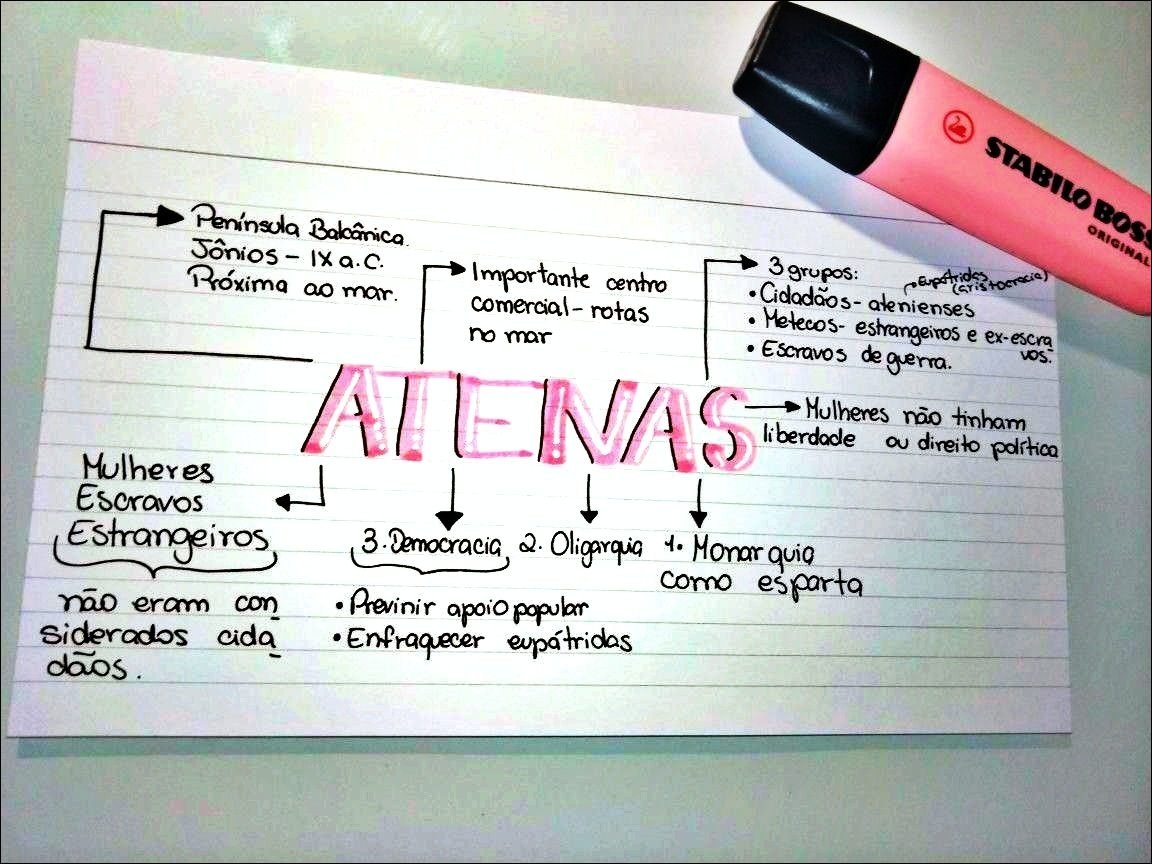 STABILO BOSS
ORIGINAL
Península Balcânica.
Jônios - IX a.C.
Próxima ao mar.
Importante centro
comercial - rotas
no mar
3 grupos:
Eupátridas
(aristocracia)
• Cidadãos - atenienses
• Metecos - estrangeiros e ex-escra
vos.
• Escravos de guerra.
ATENAS
Mulheres não tinham
liberdade ou direito política
Mulheres
Escravos
Estrangeiros
não eram con
siderados cida
dãos.
3. Democracia
• Previnir apoio popular
• Enfraquecer eupátridas
2. Oligarquia
1. Monarquia
como esparta